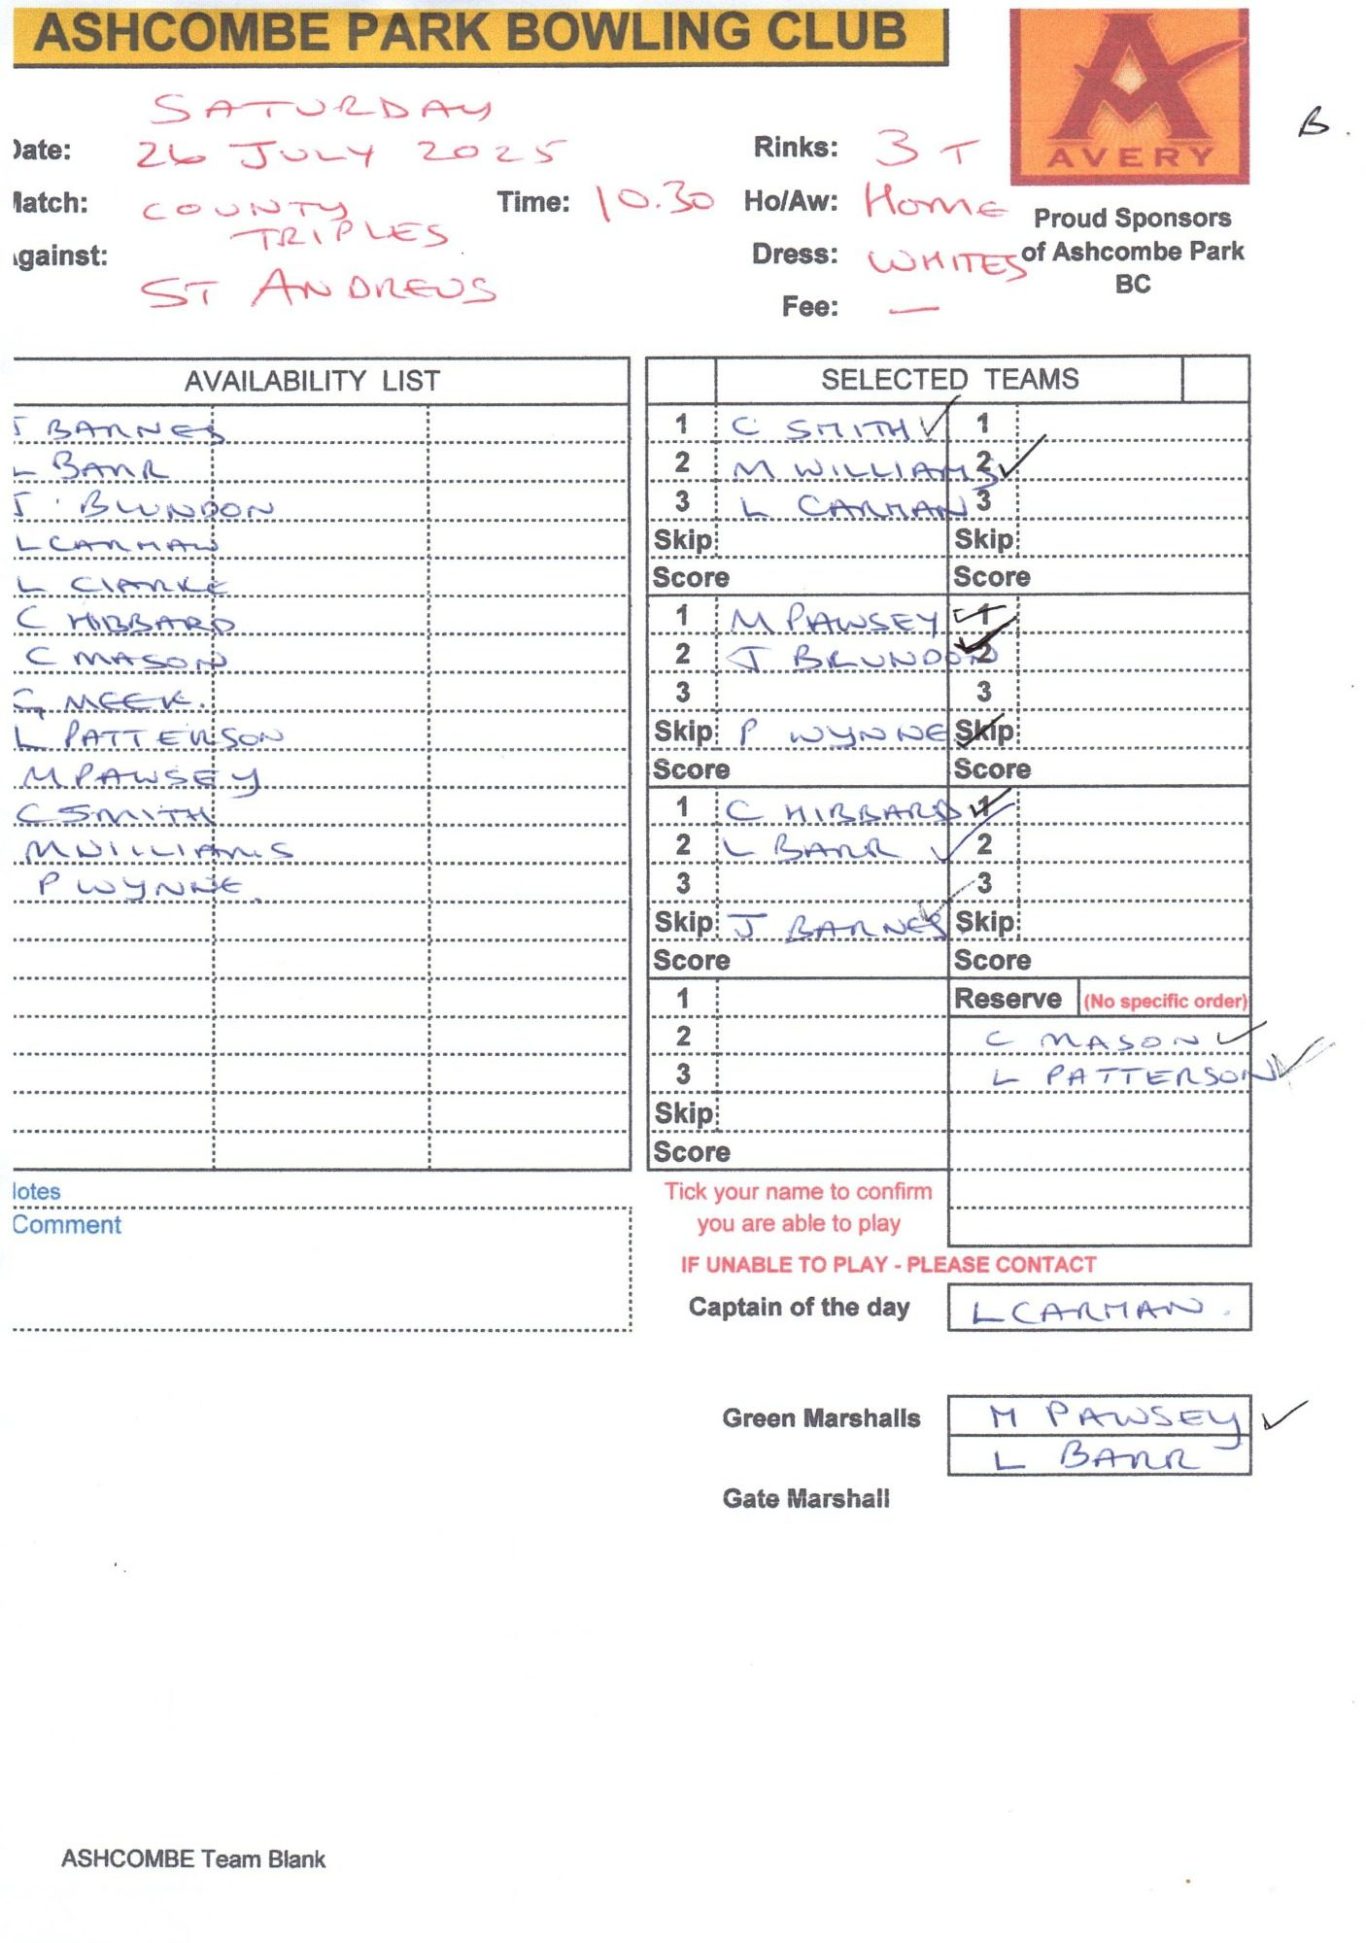 ASHCOMBE PARK BOWLING CLUB
AVERY
B.
SATURDAY
Date: 26 JULY 2025
Rinks: 3 T
Match: COUNTY TRIPLES
Time: 10.30
Ho/Aw: Home
Against: ST ANDREWS
Dress: WHITES
Fee: —
Proud Sponsors
of Ashcombe Park
BC
AVAILABILITY LIST
J BARNES
L BARR
J BLUNDON
L CARMAN
L CLARKE
C HIBBARD
C MASON
G MEEK.
L PATTERSON
M PAWSEY
C SMITH
M WILLIAMS
P WYNNE.
Notes
Comment
SELECTED TEAMS
1 C SMITH ✓ 1
2 M WILLIAMS ✓ 2
3 L CARMAN 3
Skip Skip
Score Score
1 M PAWSEY ✓ 1
2 J BLUNDON ✓ 2
3 3
Skip P WYNNE ✓ Skip
Score Score
1 C HIBBARD ✓ 1
2 L BARR ✓ 2
3 3
Skip J BARNES ✓ Skip
Score Score
1
2
3
Skip
Score
Reserve (No specific order)
C MASON ✓
L PATTERSON ✓
Tick your name to confirm
you are able to play
IF UNABLE TO PLAY - PLEASE CONTACT
Captain of the day L CARMAN.
Green Marshalls M PAWSEY ✓
L BARR
Gate Marshall
ASHCOMBE Team Blank